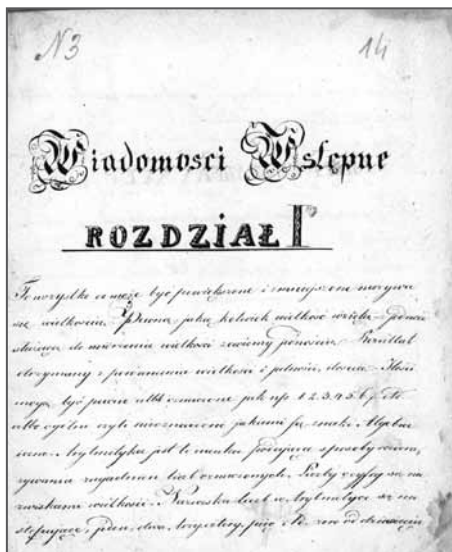 N3 14
Wiadomosci Wstępne
ROZDZIAŁ I
To wszystko co może być powiększone i zmniejszone nazywa
się wielkością. Pewna jaka kolwiek wielkość wzięta
służąca do mierzenia wielkości zowiemy jednością. Rezultat
otrzymany z porównania wielkości i jednością, zowie. Ilości
mogą być pewne albo oznaczone jak np. 1 2 3 4 5 6 7
albo ogólne czyli nieoznaczone jakiemi są znaki Algebra
iczne. Arytmetyka jest to nauka podająca sposoby rozwią
zywania zagadnień liczb oznaczonych. Liczby czyli są na
zwiskami wielkości. Nazwiska liczb w Arytmetyce są na
stępujące, jeden, dwa, trzy, cztery, pięć od dziewięciu